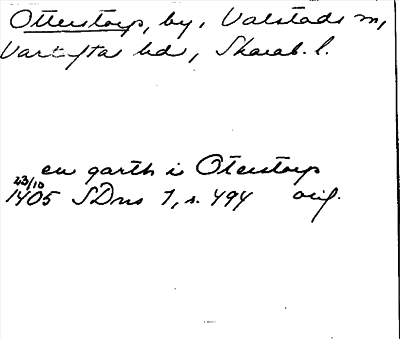 Otterstorp, by, Valstads sn,
Vartofta hd, Skarab. l.
en garth i Oterstorp
23/10
1405 SDns 1, s. 494 orig.